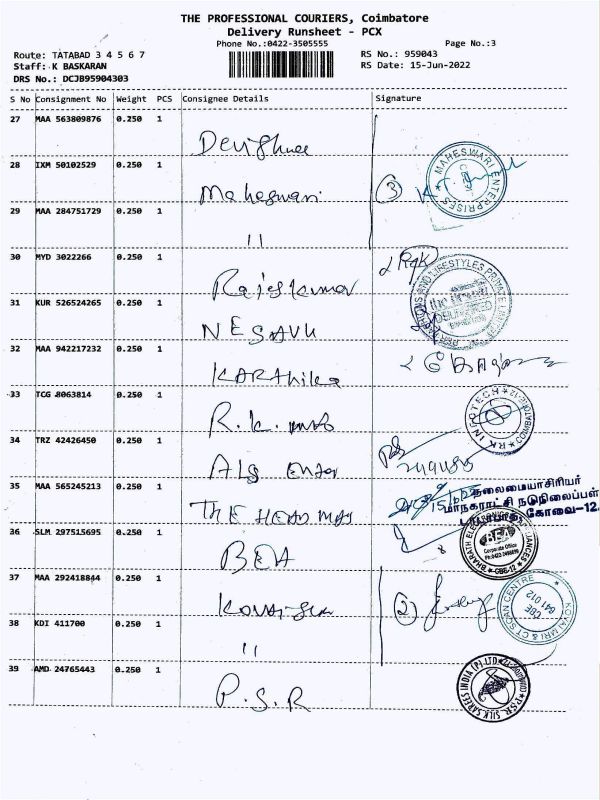 THE PROFESSIONAL COURIERS, Coimbatore
Delivery Runsheet - PCX
Phone No.:0422-3505555
Page No.:3
Route: TATABAD 3 4 5 6 7
RS No.: 959043
Staff: K BASKARAN
RS Date: 15-Jun-2022
DRS No.: DCJB95904303
S No Consignment No Weight PCS Consignee Details Signature
27 MAA 563809876 0.250 1
28 IXM 50102529 0.250 1 Maheswari
3
MAHESWARI ENTERPRISES
29 MAA 284751729 0.250 1 11
30 MYD 3022266 0.250 1 Rajeskumar
31 KUR 526524265 0.250 1 NESAVU
32 MAA 942217232 0.250 1 KARthika
33 TCG 8063814 0.250 1 R.K.
RK INFOTECH COIMBATORE-12
34 TRZ 42426450 0.250 1
35 MAA 565245213 0.250 1 THE HEAD MAS
தலைமையாசிரியர்
மாநகராட்சி நடுநிலைப்பள்
கோவை-12.
36 SLM 297515695 0.250 1 BEA
BEA
Corporate Office
CBE-12
37 MAA 292418844 0.250 1
2
KOVAI MRI & CT SCAN CENTRE
CBE
641 012
38 KDI 411700 0.250 1 11
39 AMD 24765443 0.250 1 P.S.R
P.S.R. SILK SAREES INDIA (P) LTD